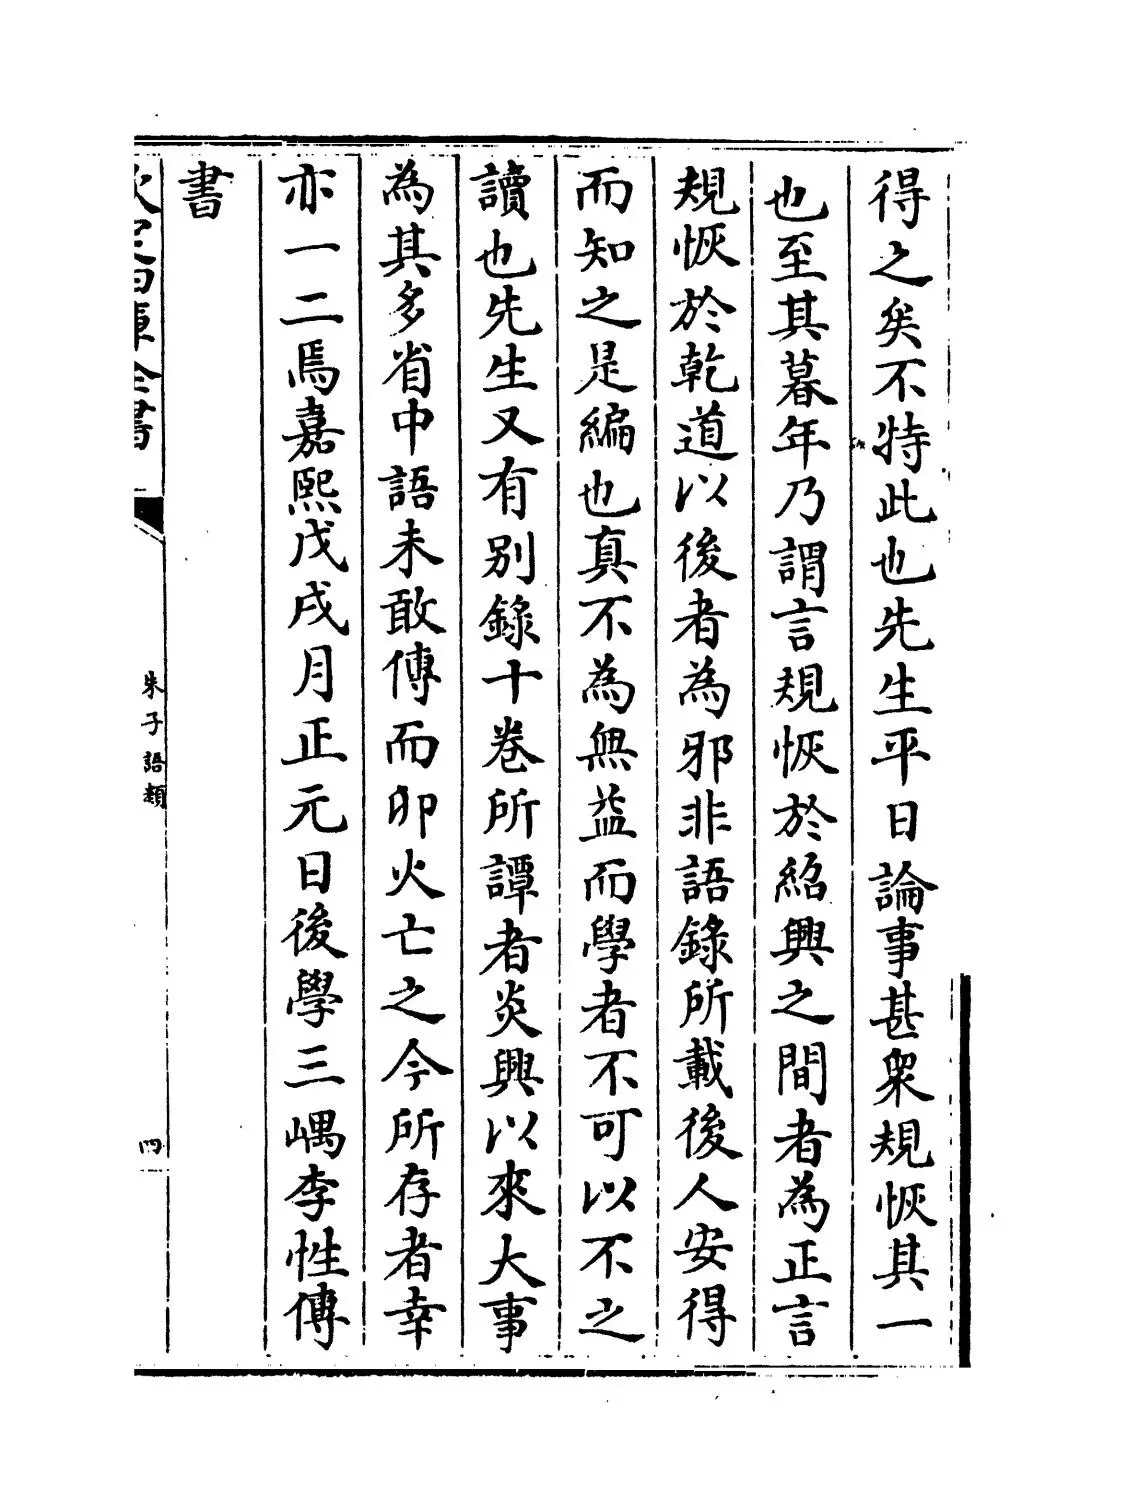 得之矣不特此也先生平日論事甚衆規恢其一
也至其暮年乃謂言規恢於紹興之間者為正言
規恢於乾道以後者為邪非語錄所載後人安得
而知之是編也真不為無益而學者不可以不之
讀也先生又有别錄十卷所譚者炎興以來大事
為其多省中語未敢傳而卯火亡之今所存者幸
亦一二焉嘉熙戊戌月正元日後學三嵎李性傳
書
欽定四庫全書
朱子語類
四